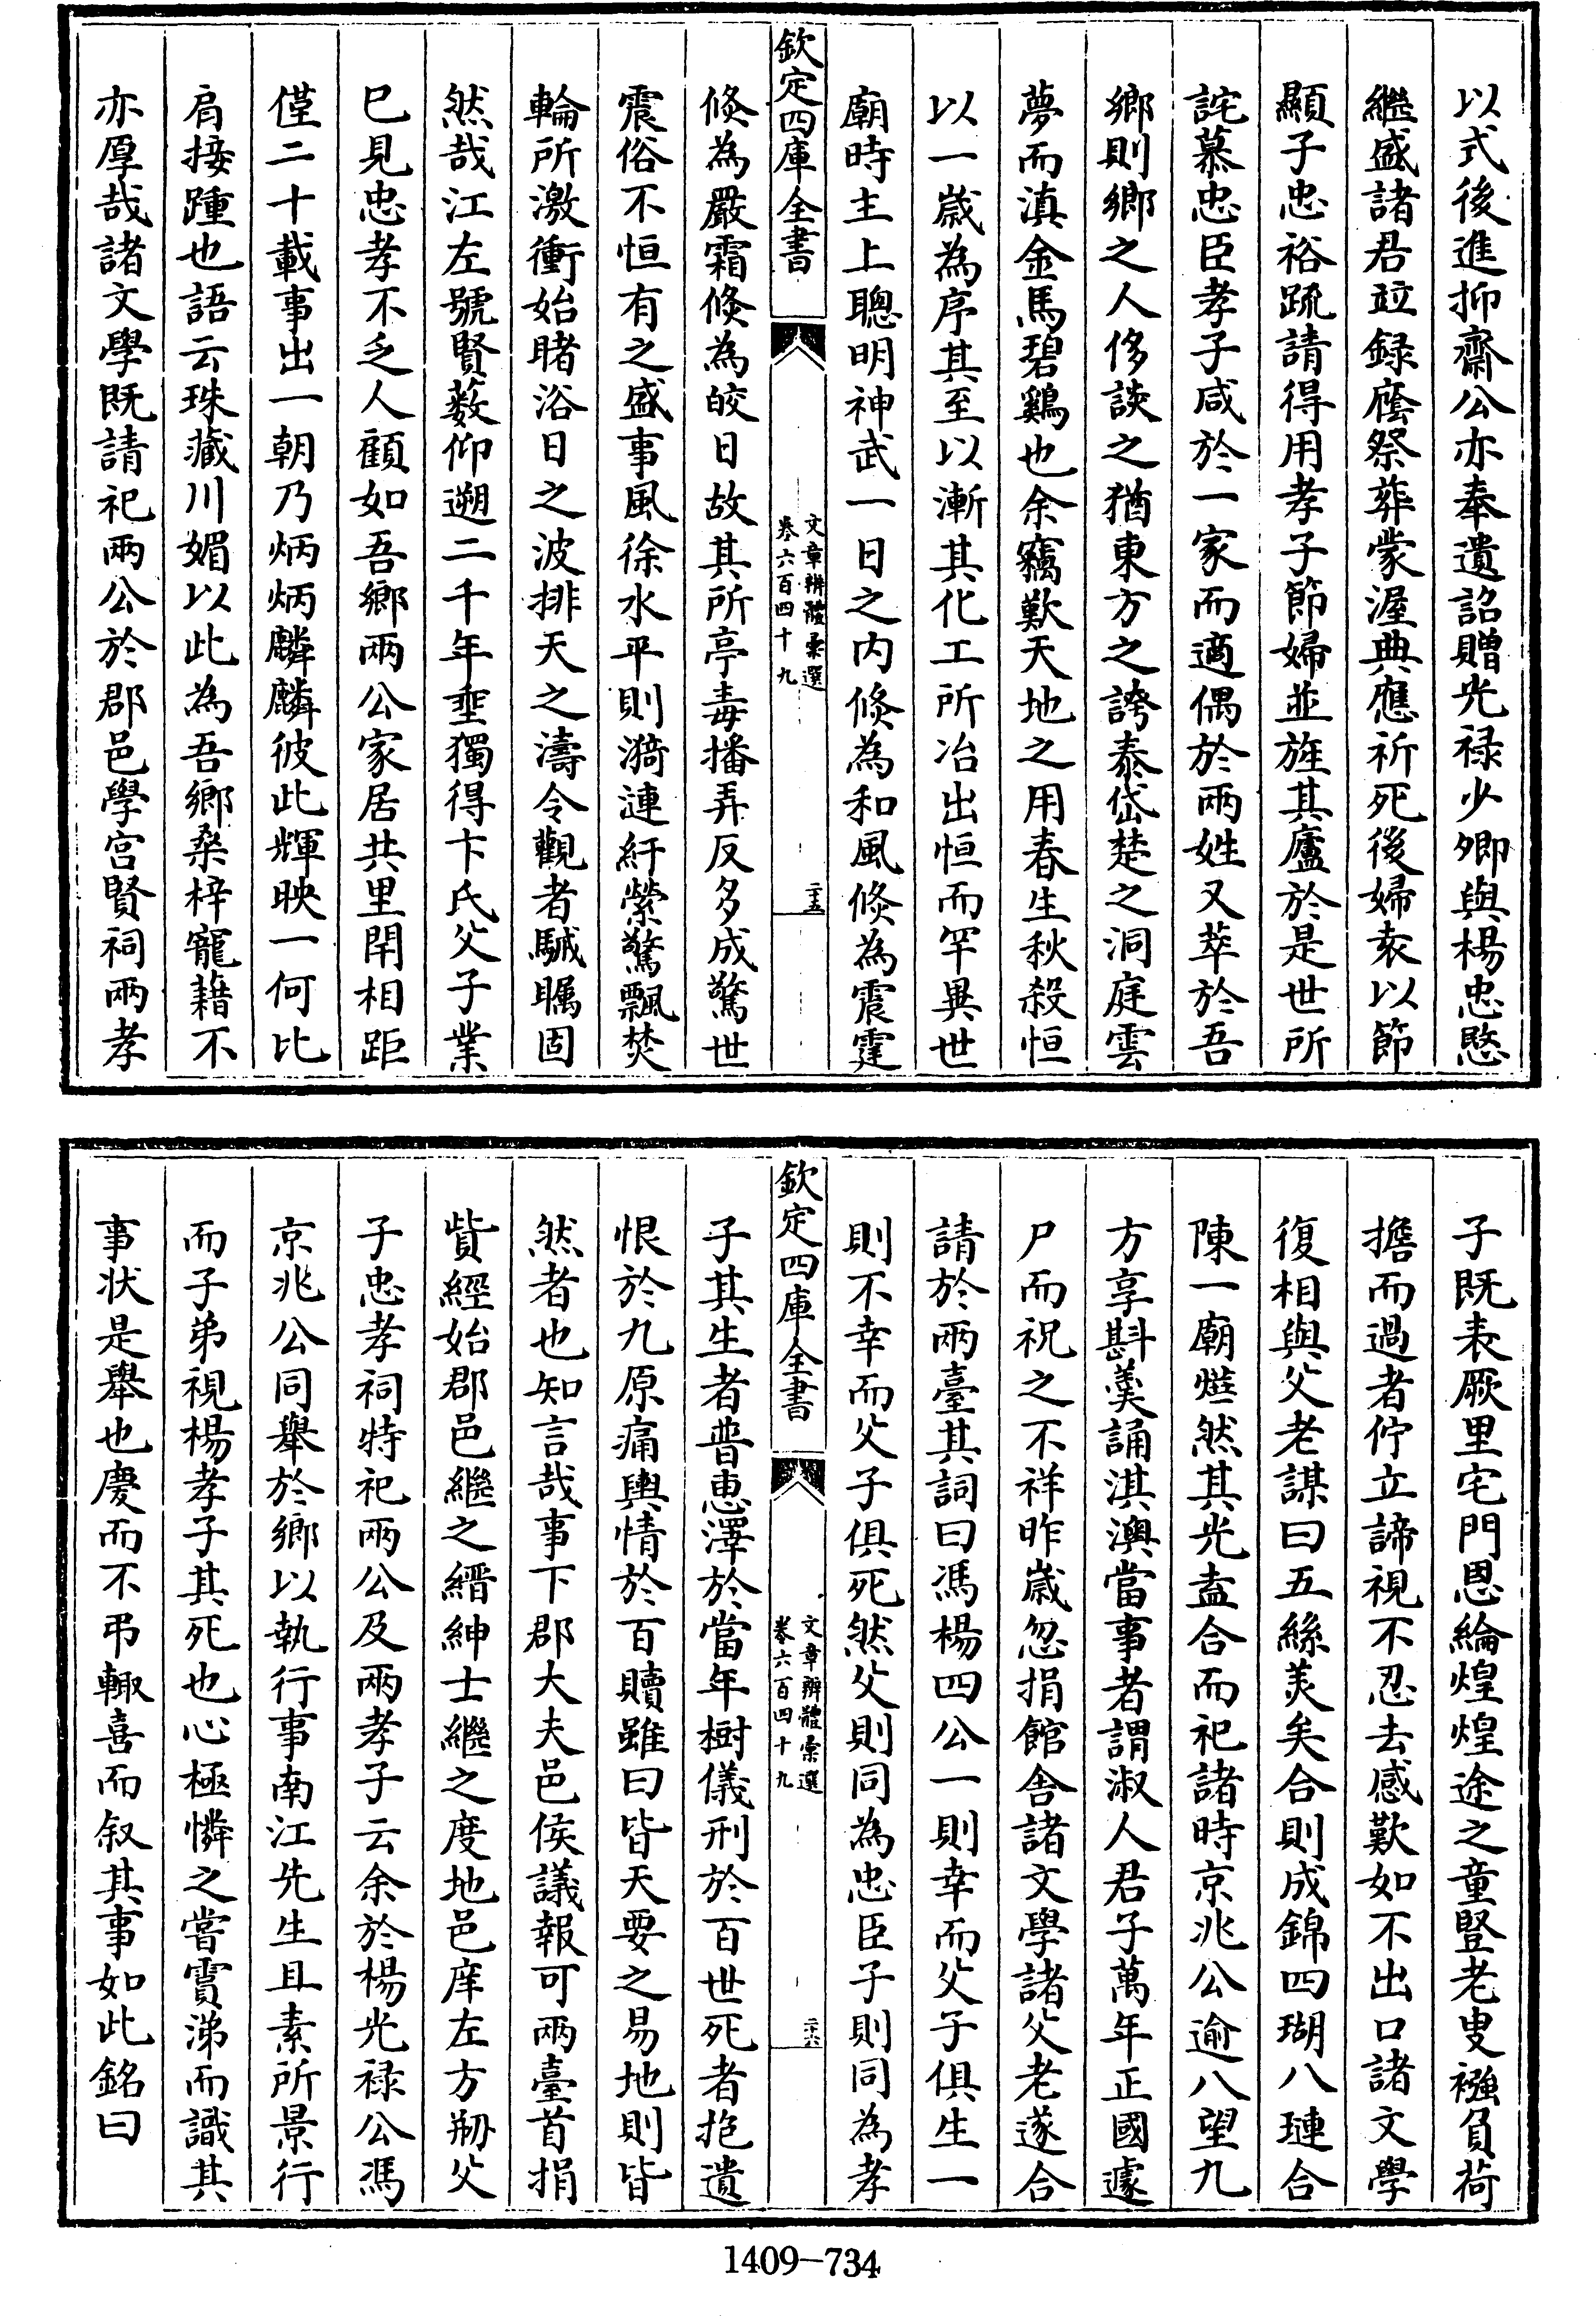 以式後進抑齋公亦奉遺詔贈光禄少卿與楊忠愍
繼盛諸君竝録廕祭葬蒙渥典應祈死後婦袁以節
顯子忠裕䟽請得用孝子節婦並旌其廬於是世所
詫慕忠臣孝子咸於一家而適偶於兩姓又萃於吾
鄉則鄉之人侈談之猶東方之誇泰岱楚之洞庭雲
夢而滇金馬碧鷄也余竊歎天地之用春生秋殺恒
以一歳為序其至以漸其化工所冶出恒而罕異世
廟時主上聰明神武一日之内倐為和風倐為震霆
欽定四庫全書
文章辨體彚選
卷六百四十九
二十五
倐為嚴霜倐為皎日故其所亭毒播弄反多成驚世
震俗不恒有之盛事風徐水平則漪連紆縈驚飄焚
輪所激衝始睹浴日之波排天之濤令觀者駴矚固
然哉江左號賢藪仰遡二千年埀獨得卞氏父子業
已見忠孝不乏人顧如吾鄉兩公家居共里閈相距
僅二十載事出一朝乃炳炳麟麟彼此輝映一何比
肩接踵也語云珠藏川媚以此為吾鄉桑梓寵藉不
亦厚哉諸文學既請祀兩公於郡邑學宫賢祠兩孝
子既表厥里宅門恩綸煌煌途之童豎老叟襁負荷
擔而過者佇立諦視不忍去感歎如不出口諸文學
復相與父老謀曰五絲美矣合則成錦四瑚八璉合
陳一廟燁然其光盍合而祀諸時京兆公逾八望九
方享斟羮誦淇澳當事者謂淑人君子萬年正國遽
尸而祝之不祥昨歳忽捐館舍諸文學諸父老遂合
請於兩臺其詞曰馮楊四公一則幸而父子俱生一
則不幸而父子俱死然父則同為忠臣子則同為孝
欽定四庫全書
文章辨體彚選
卷六百四十九
二十六
子其生者普惠澤於當年樹儀刑於百世死者抱遺
恨於九原痛輿情於百贖雖曰皆天要之易地則皆
然者也知言哉事下郡大夫邑侯議報可兩臺首捐
貲經始郡邑繼之縉紳士繼之度地邑庠左方剏父
子忠孝祠特祀兩公及兩孝子云余於楊光禄公馮
京兆公同舉於鄉以執行事南江先生且素所景行
而子弟視楊孝子其死也心極憐之嘗賈涕而識其
事状是舉也慶而不弔輙喜而叙其事如此銘曰
1409—734